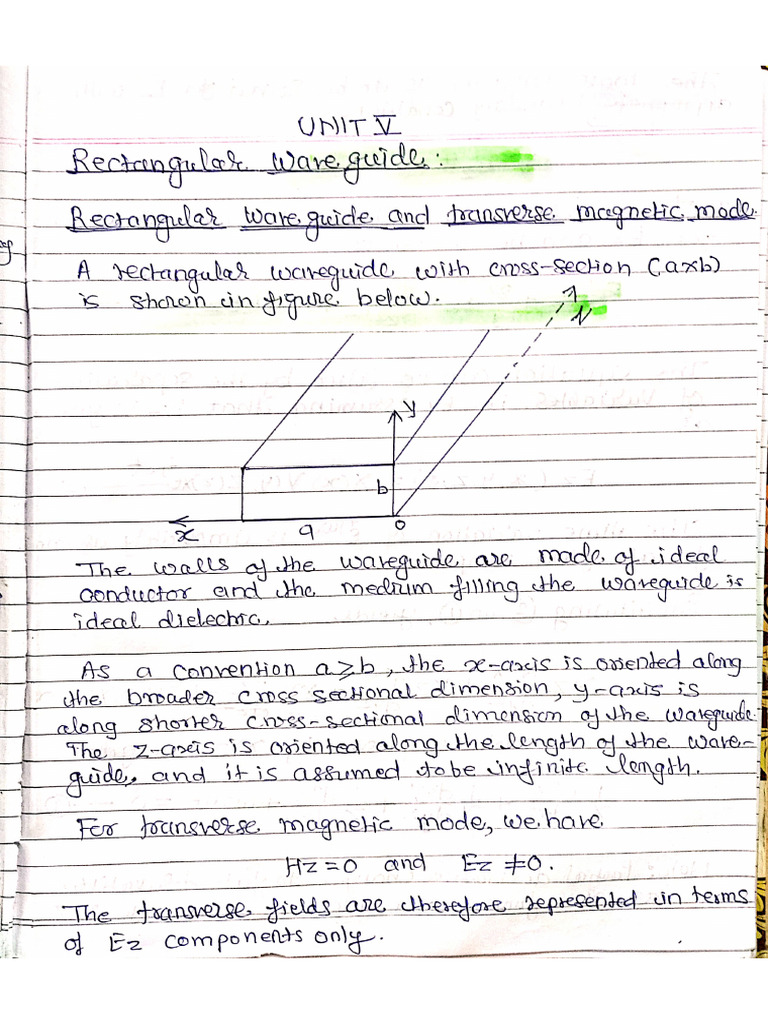 UNIT V
Rectangular waveguide:
Rectangular waveguide and transverse magnetic mode.
A rectangular waveguide with cross-section (axb)
is shown in figure below.
z
y
b
x
a
o
The walls of the waveguide are made of ideal
conductor and the medium filling the waveguide is
ideal dielectric.
As a convention a≥b, the x-axis is oriented along
the broader cross sectional dimension, y-axis is
along shorter cross-sectional dimension of the waveguide.
The z-axis is oriented along the length of the wave-
guide, and it is assumed to be infinite length.
For transverse magnetic mode, we have
Hz=0 and Ez ≠0.
The transverse fields are therefore represented in terms
of Ez components only.